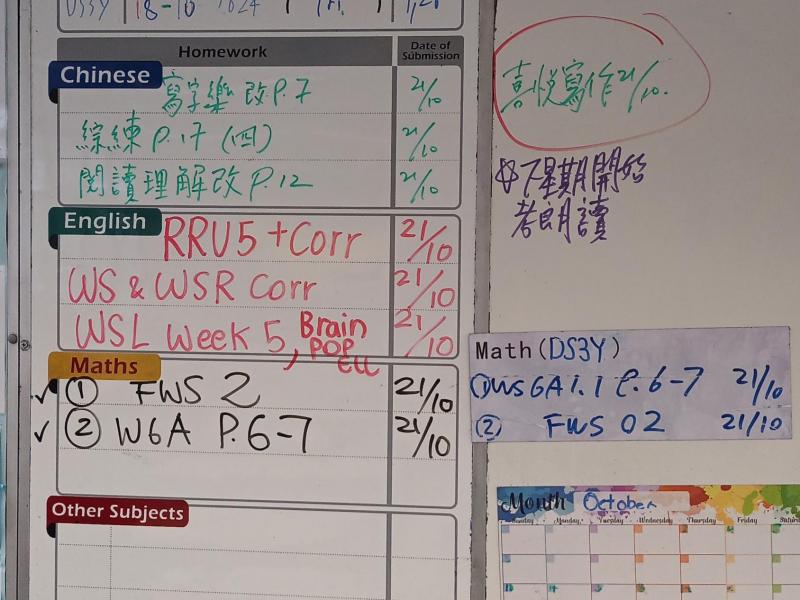 18-10-2024
Homework
Date of Submission
Chinese
寫字樂改P.7
21/10
綜練P.17(四)
21/10
閱讀理解改P.12
21/10
English
RRU5+Corr
21/10
WS & WSR Corr
21/10
WSL Week 5, Brain POP ELL
21/10
Maths
✓ ① FWS 2
21/10
✓ ② W6A P.6-7
21/10
Other Subjects
喜悅寫作21/10.
☆下星期開始
考朗讀
Math (DS3Y)
①WS 6A1.1 P.6-7 21/10
② FWS 02 21/10
Month October
Sunday Monday Tuesday Wednesday Thursday Friday